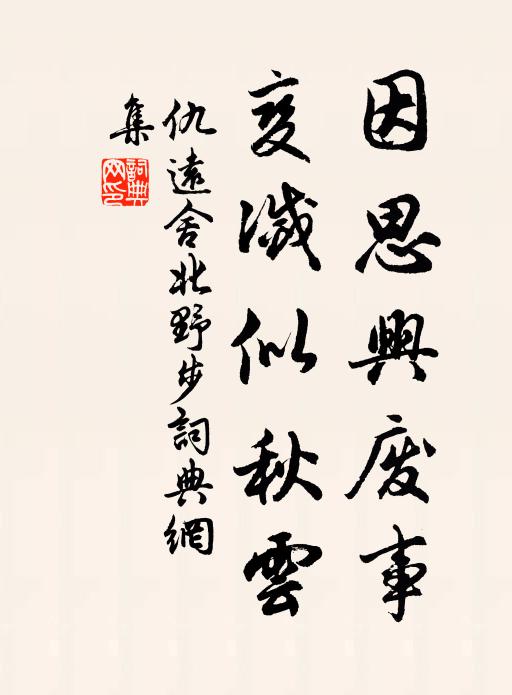 因思興廢事
变滅似秋雲
仇遠舍北野步詞典網
集
詞典
网印